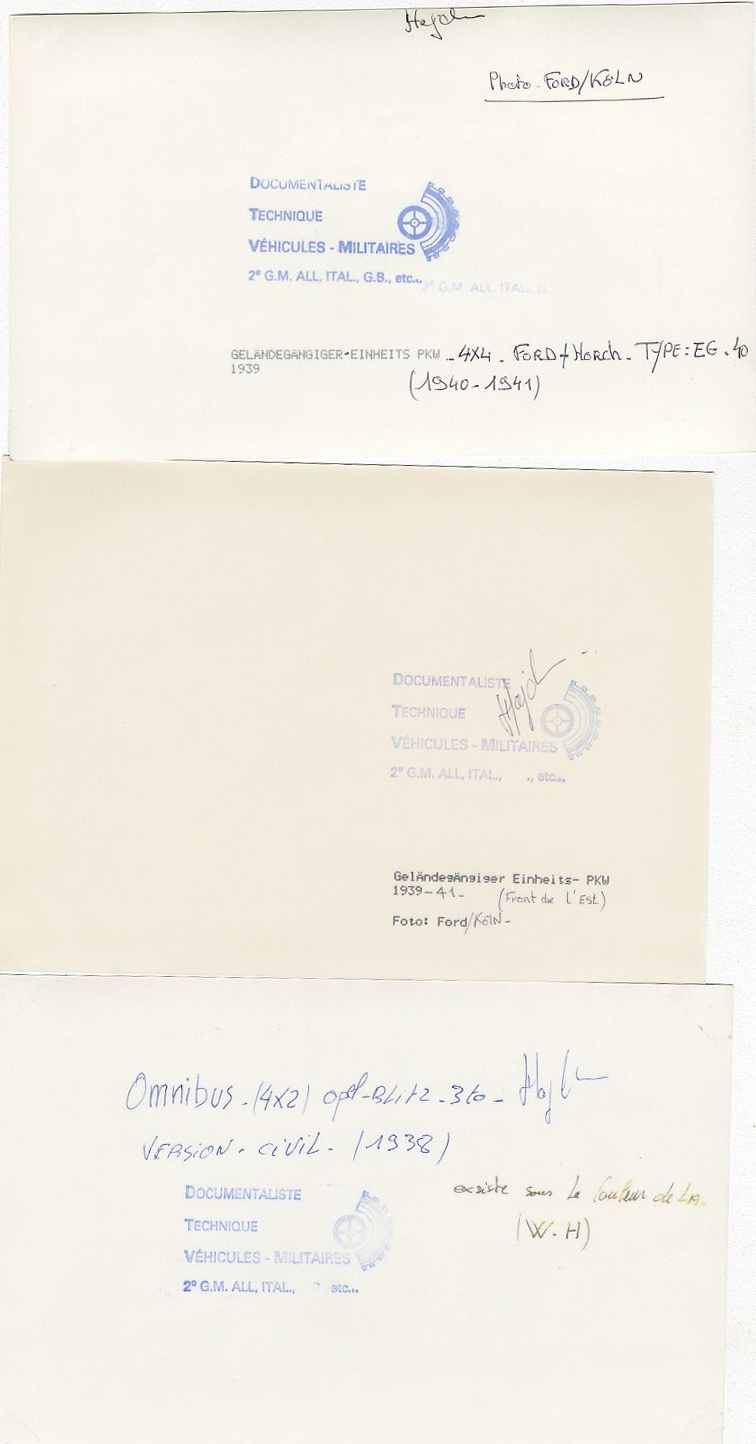 Photo - FORD/KÖLN
DOCUMENTALISTE
TECHNIQUE
VÉHICULES - MILITAIRES
2º G.M. ALL, ITAL., G.B., etc...
2º G.M. ALL, ITAL., G.
GELÄNDEGÄNGIGER-EINHEITS PKW - 4X4 - FORD + Horch - TYPE: EG - 40
1939
(1940-1941)
DOCUMENTALISTE
TECHNIQUE
VÉHICULES - MILITAIRES
2º G.M. ALL, ITAL., ., etc...
Geländegängiger Einheits- PKW
1939-41- (Front de L'Est)
Foto: Ford/KÖLN-
Omnibus - (4X2) opel-BLitz - 3to -
VERSION - CIVIL - (1938)
DOCUMENTALISTE
exsiste sous La Couleur de LA.
TECHNIQUE
(W.H)
VÉHICULES - MILITAIRES
2º G.M. ALL, ITAL., etc...